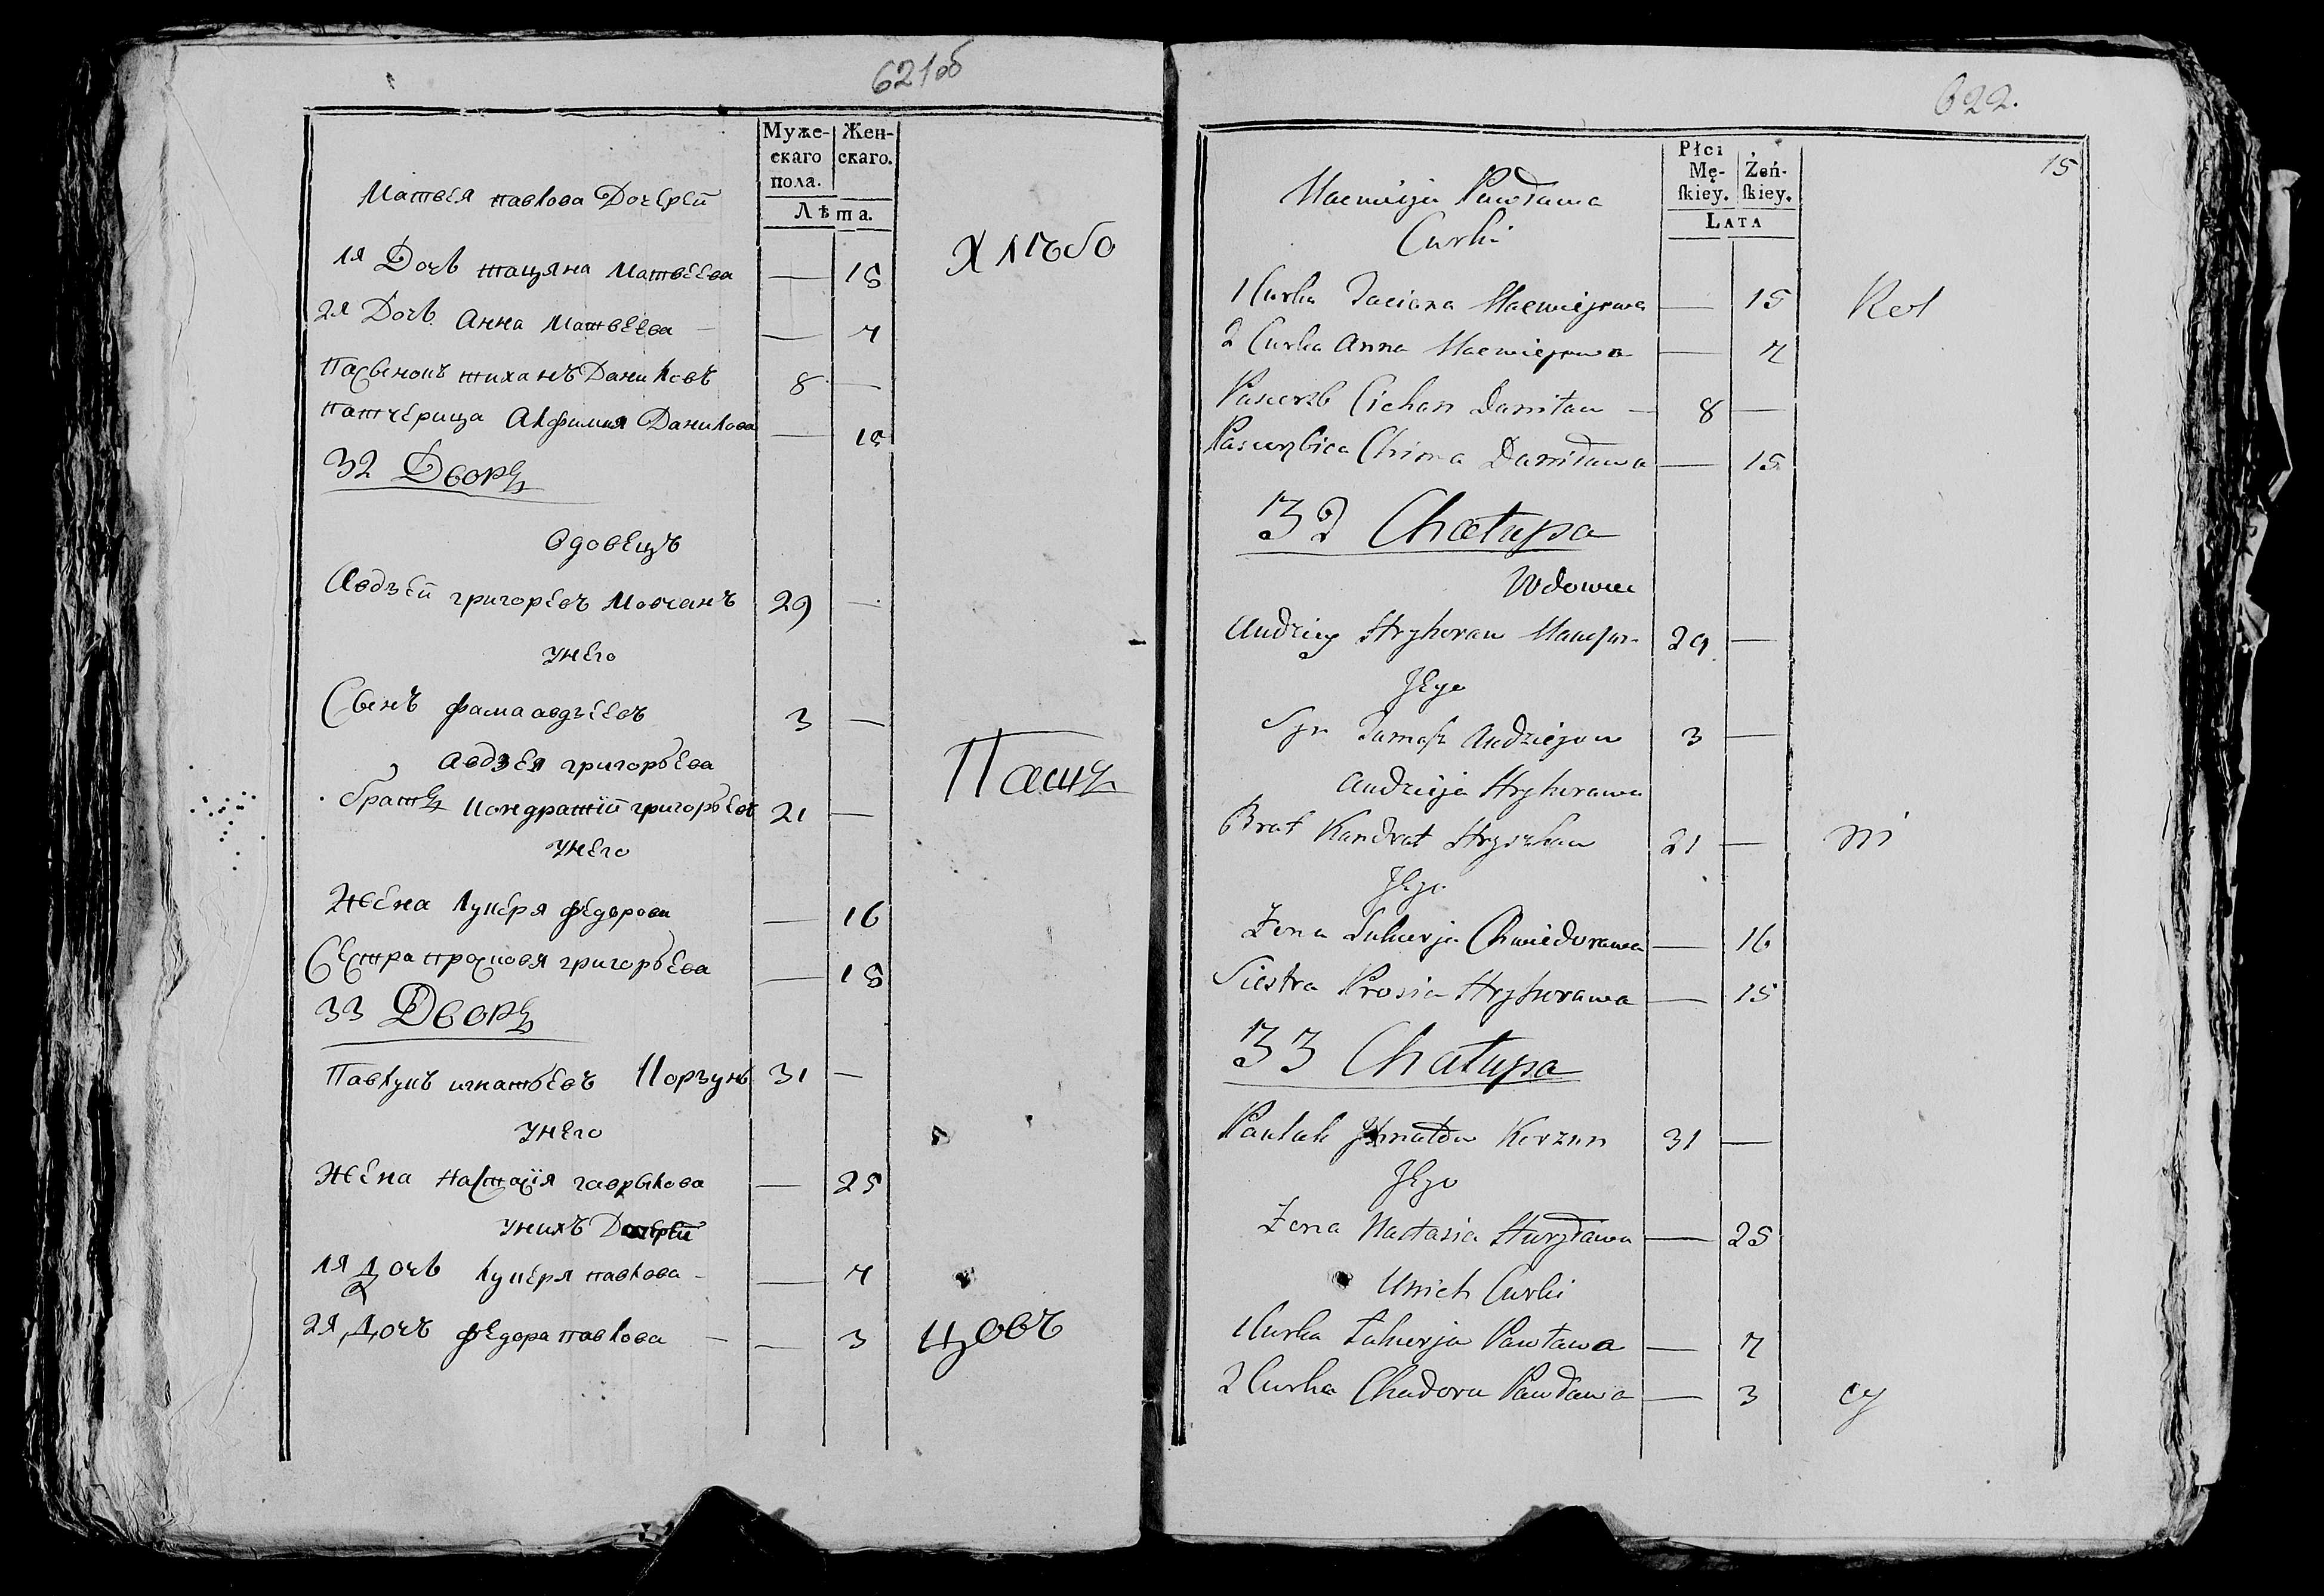 621об
Муже-
скаго
пола.
Жен-
скаго.
Лѣта.
Матвея павлова Дочерей
1я Дочь тацяна Матвеева — 15
2я Дочь Анна Матвеева — — 7
пасынокъ тиханъ Даниловъ 8 —
патчерица Данилова — 15
32 Дворъ
вдовецъ
Авдзей григорьевъ Мовчанъ 29 —
унего
Сынъ фама авдзеевъ 3 —
авдзея григорьева
братъ кондратiй григорьевъ 21 —
унего
Жена лукеря федорова — 16
Сестра просковя григорьева — 15
33 Дворъ
Павлукъ игнатьевъ Корзунъ 31 —
унего
Жена настасiя гаврылова — 25
унихъ Дочерей
1я Дочь лукеря павлова — — 7
2я Дочъ федора павлова — — 3
Пащ
цовъ
622.
15
Płci
Mę-
ſkiey.
Żeń-
ſkiey.
LATA
Macwieja Pawława
Curki
1 Curka Taciana Macwiejewa — 15
2 Curka Anna Macwiejewa — 7
Pasierzb Cichan Daniław — 8 —
Pasierzbica Daniława — 15
32 Chałupa
Wdowiec
Audziey Hryhoraw 29 —
Jego
Syn Tamasz Audziejew 3 —
Audzieja Hryhorawa
Brat Kandrat 21 —
Jego
Żona Łukierja Chwiedorawa — 16
Siestra Prosia Hryhorawa — 15
33 Chałupa
Pauluk Korzun 31 —
Jego
Żona Nastasia Huryława — 25
Unich Curki
1 Curka Łukierja Pawława — 7
2 Curka Chadora Pawława — 3